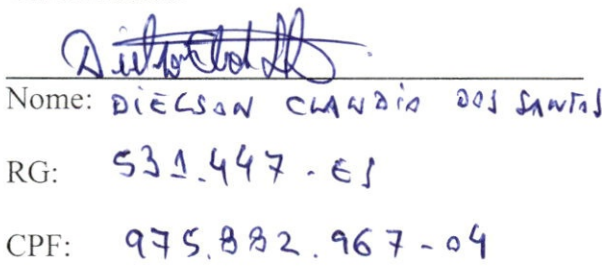 Nome: DIELSON CLAUDIO DOS SANTOS
RG: 531.447-ES
CPF: 975.882.967-04